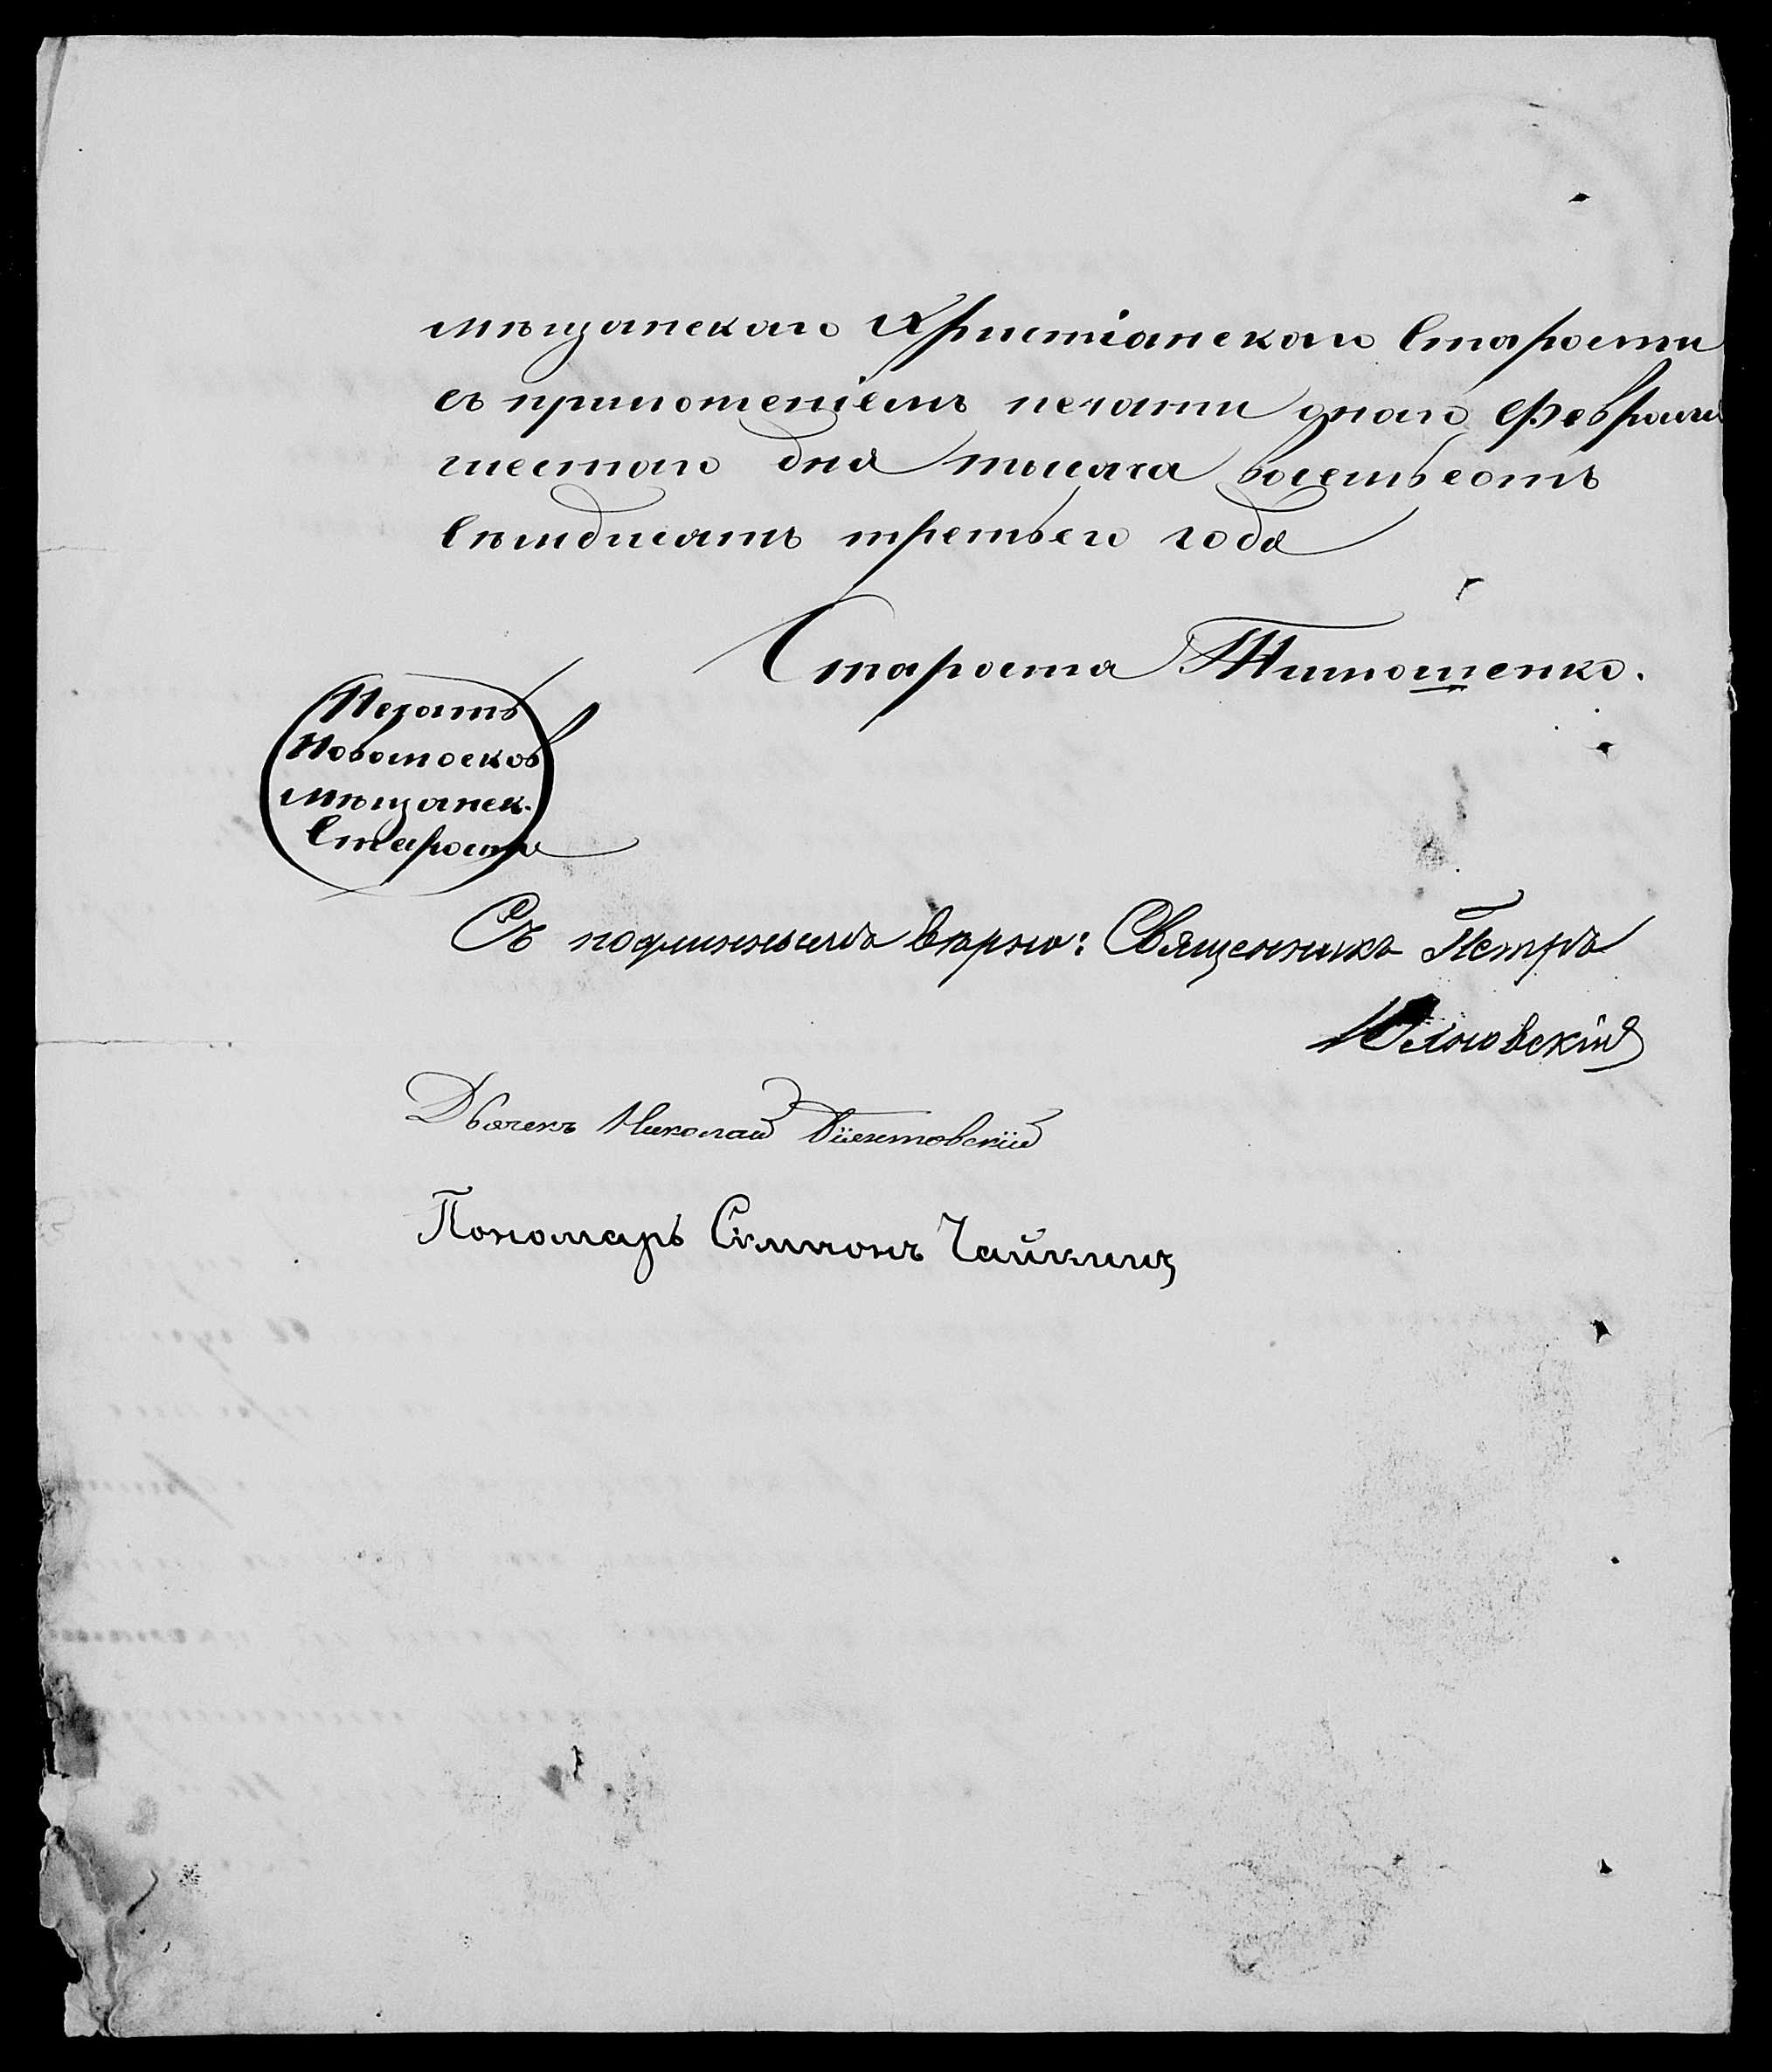 мѣщанскаго Христіанскаго Старосты
съ приложеніемъ печати онаго Февраля
шестаго дня тысяча восемьсотъ
семдисятъ третьего года
Староста Тимошенко.
Печать
Новомосков
мѣщанск.
Старосты
Съ подлиннымъ вѣрно: Священникъ Петръ
Дьячекъ Николай
Пономарь Симеонъ Чайкин